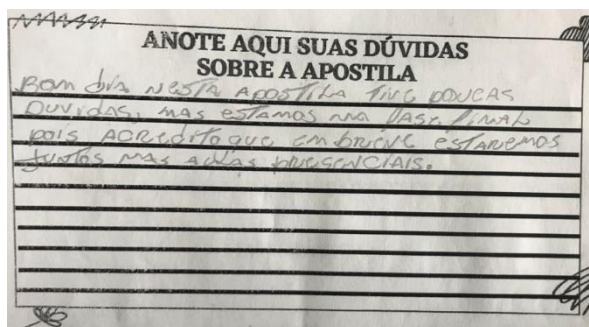 ANOTE AQUI SUAS DÚVIDAS
SOBRE A APOSTILA
Bom dia nesta apostila tive poucas
Duvidas, mas estamos na fase final
pois acredito que em breve estaremos
juntos nas aulas presenciais.